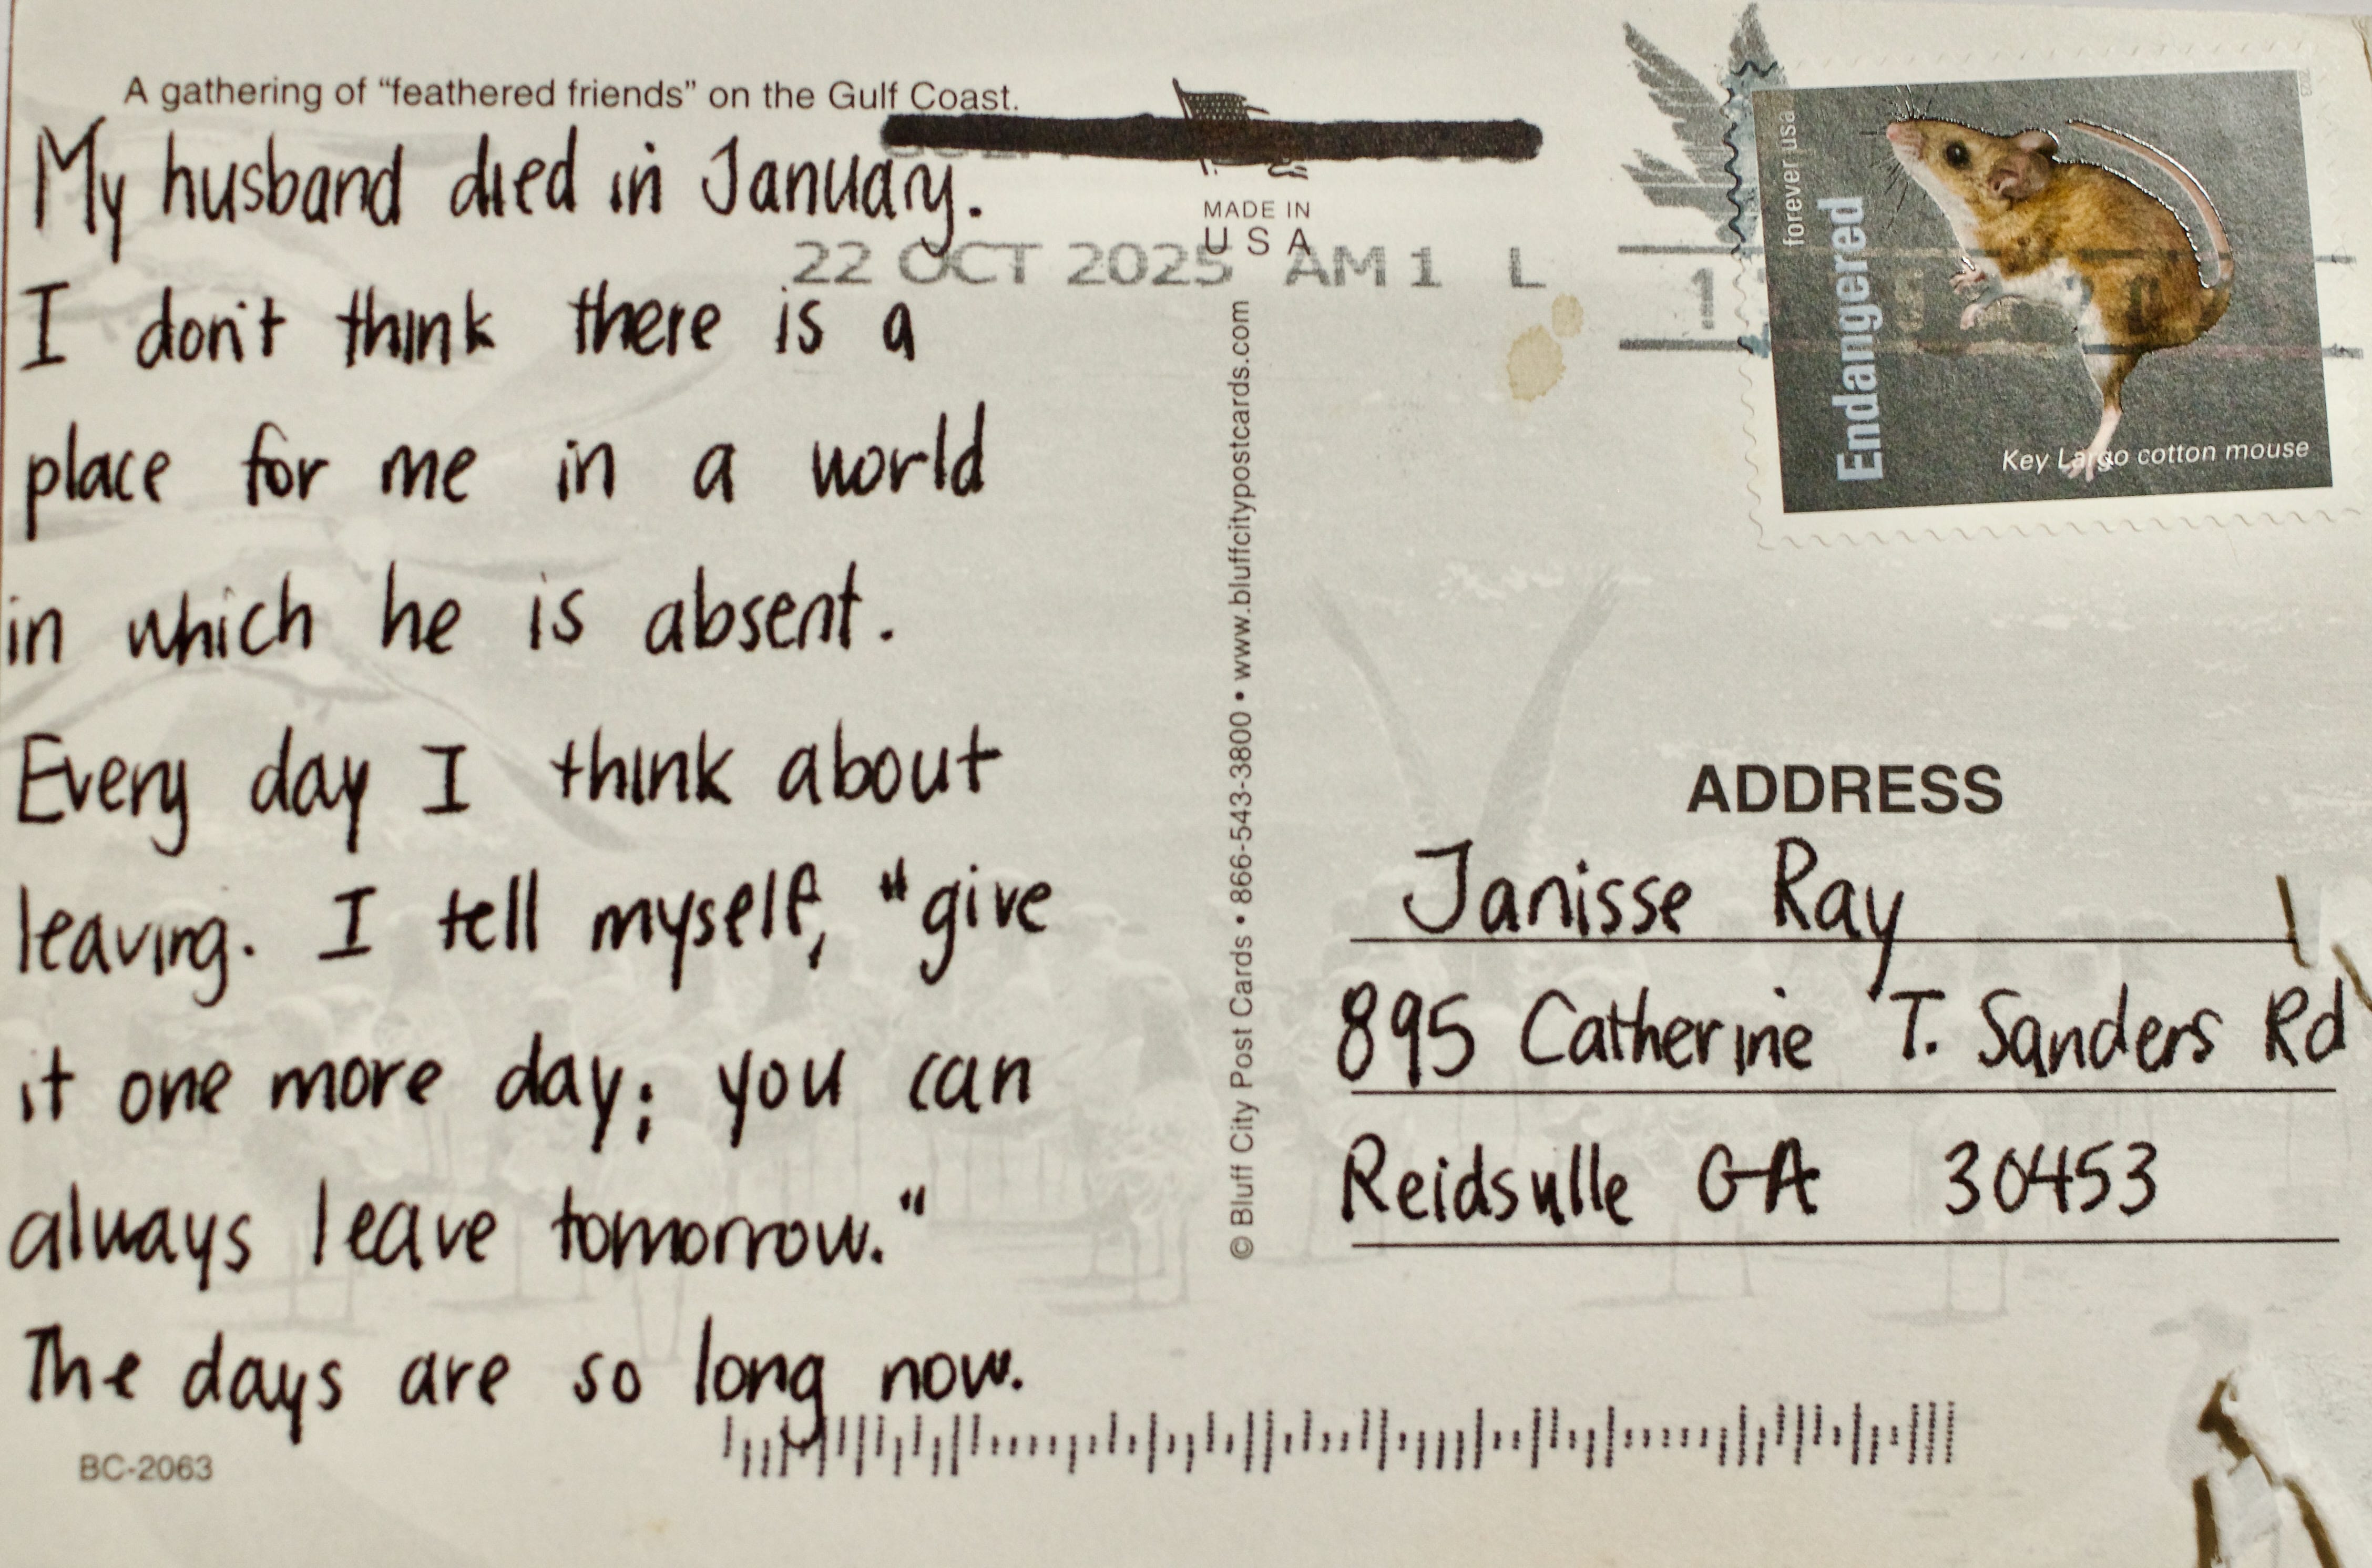 A gathering of “feathered friends” on the Gulf Coast.
My husband died in January.
I don't think there is a
place for me in a world
in which he is absent.
Every day I think about
leaving. I tell myself, "give
it one more day; you can
always leave tomorrow."
The days are so long now.
BC-2063
MADE IN
USA
22 OCT 2025 AM 1 L
© Bluff City Post Cards • 866-543-3800 • www.bluffcitypostcards.com
forever usa
Endangered
Key Largo cotton mouse
ADDRESS
Janisse Ray
895 Catherine T. Sanders Rd
Reidsville GA 30453